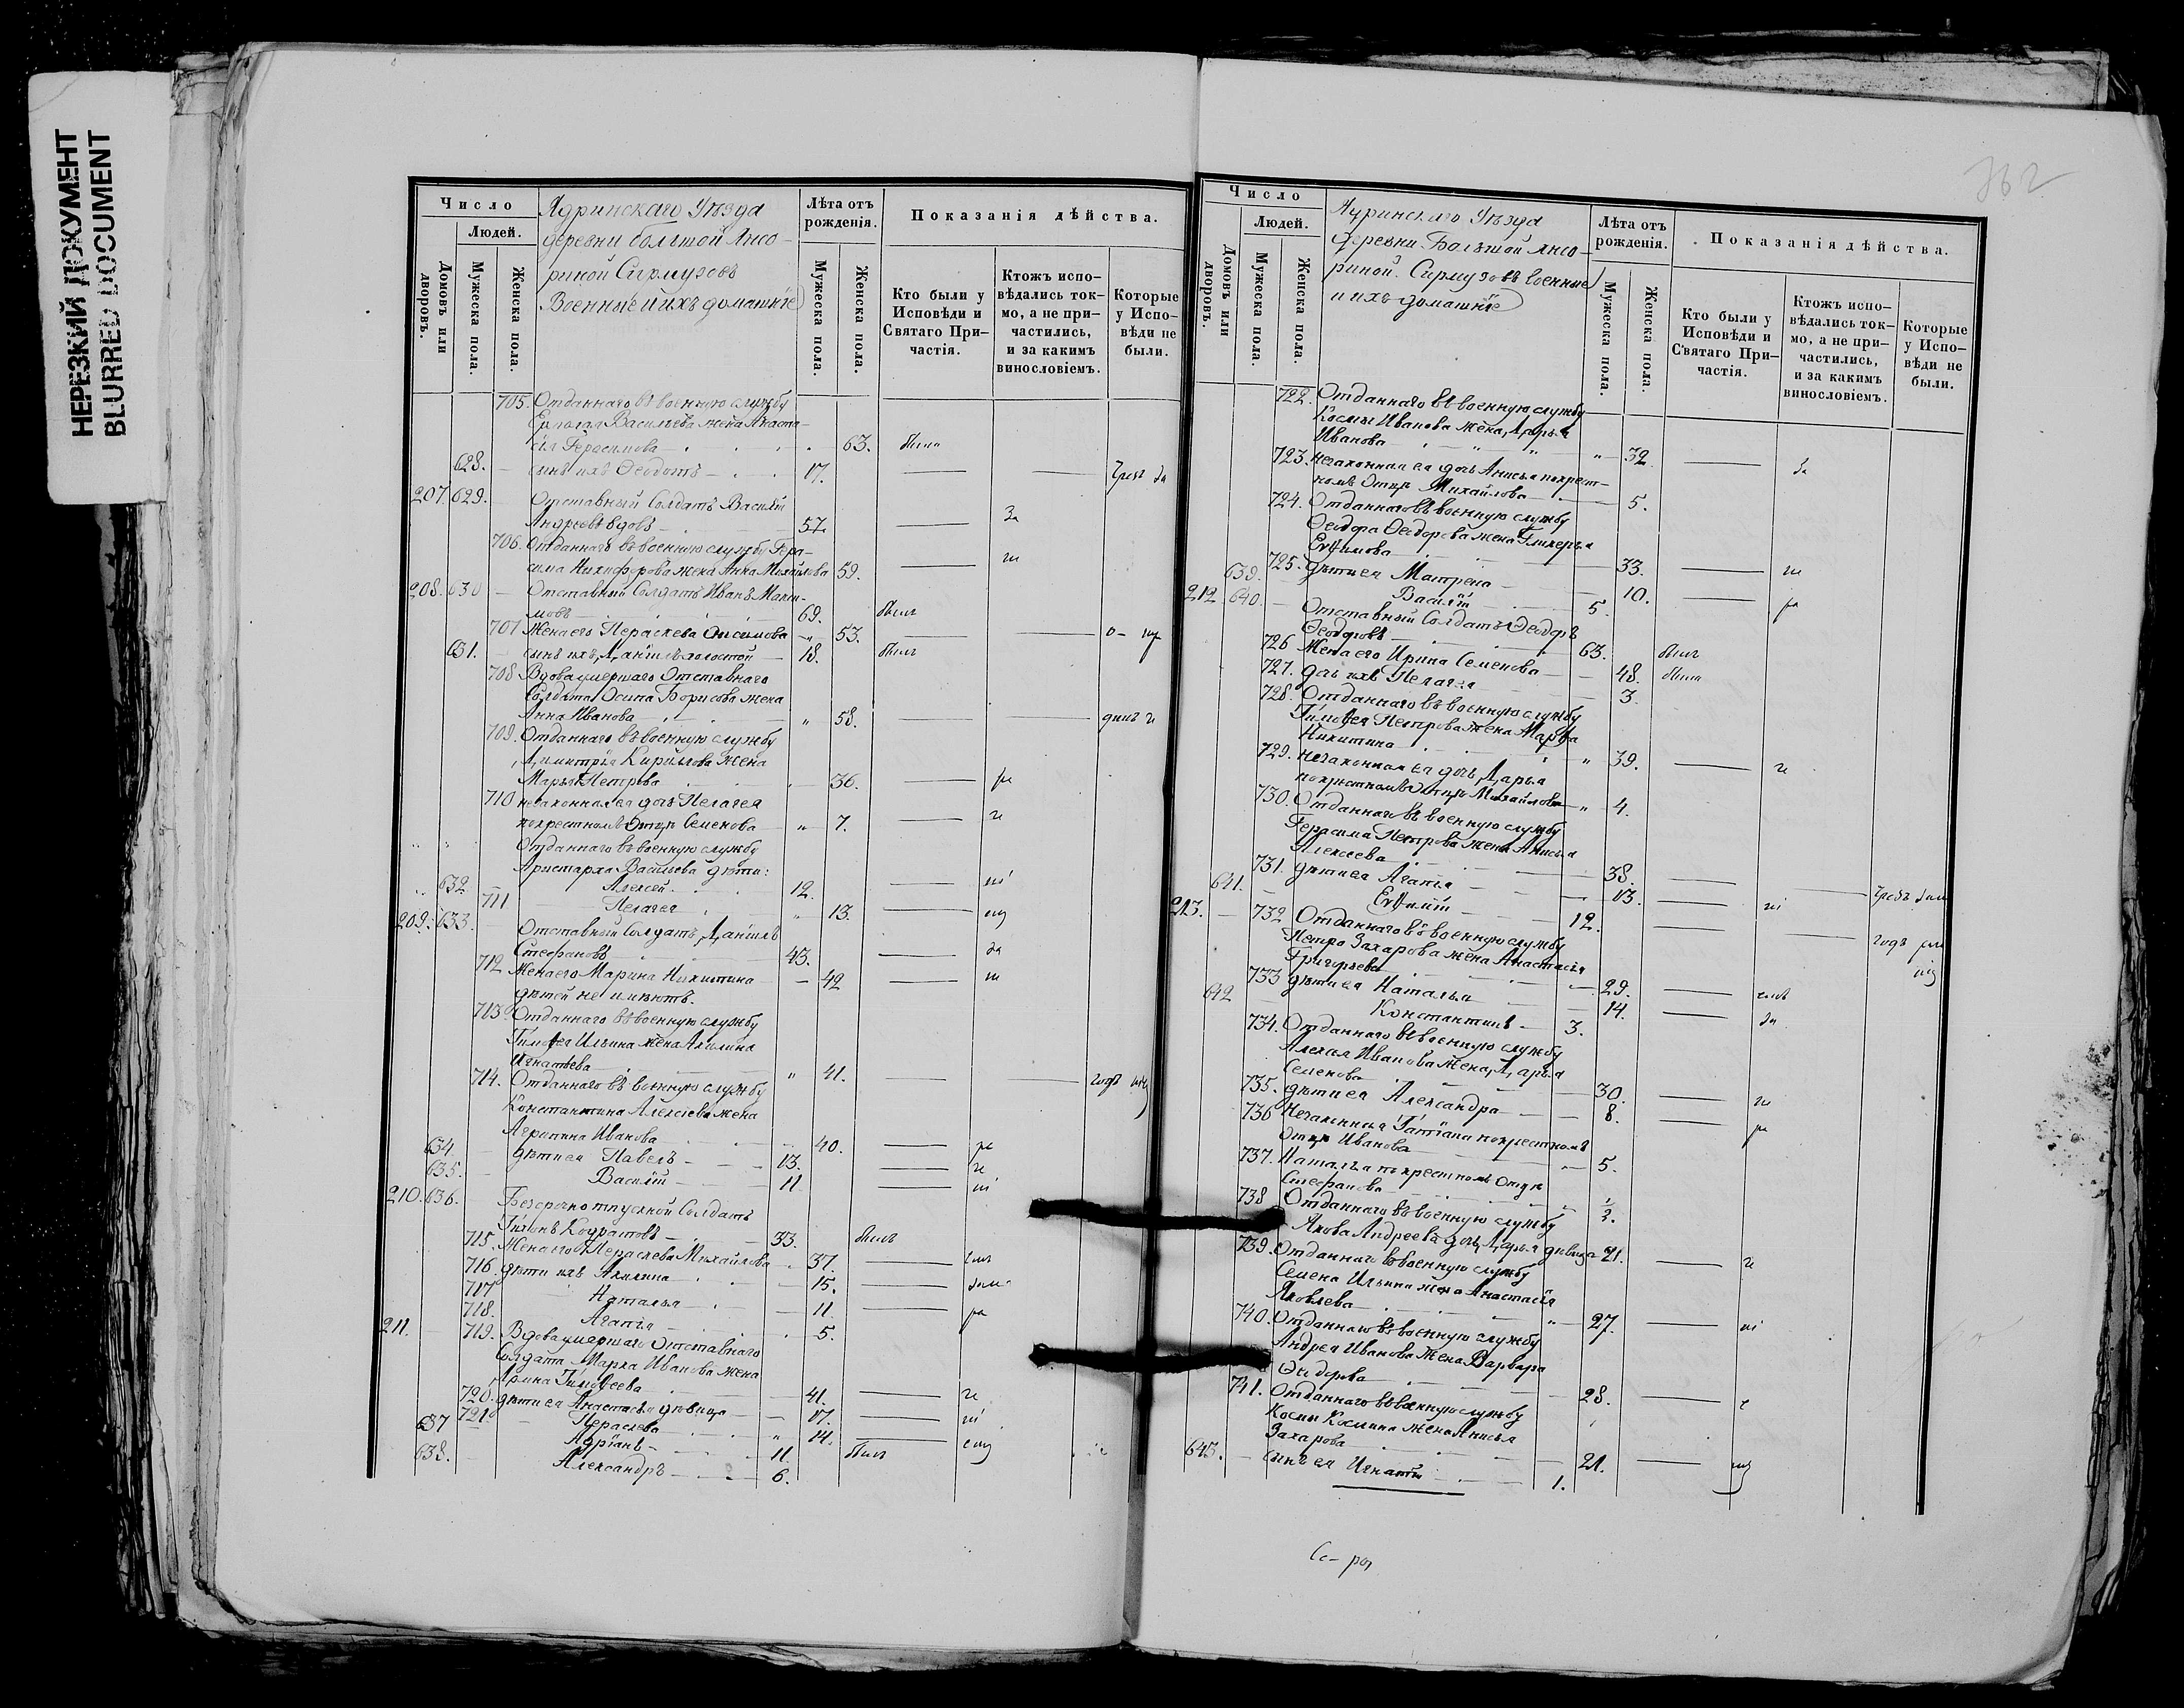 НЕРЕЗКИЙ ДОКУМЕНТ
BLURRED DOCUMENT
Число
Людей.
Домовъ или дворовъ.
Мужеска пола.
Женска пола.
Ядринскаго Уѣзда
деревни большой Янсо-
риной Сирмузовъ
Военные и ихъ домашніе
Лѣта отъ рожденія.
Мужеска пола.
Женска пола.
Показанія дѣйства.
Кто были у Исповѣди и Святаго При-частія.
Ктожъ испо-вѣдались ток-мо, а не при-частились, и за какимъ винословіемъ.
Которые у Испо-вѣди не были.
705. Отданнаго въ военную службу
Ермолая Васильева жена Анаста-
сія Герасимова 63. была
628. сынъ ихъ Ѳеодотъ 17.
207. 629. Отставный Солдатъ Василій
Андреевъ вдовъ 57.
706. Отданнаго въ военную службу Гера-
сима Никифорова жена Анна Михайлова 59.
208. 630 Отставный Солдатъ Иванъ Макси-
мовъ 69. былъ
707 Жена его Параскева Онисимова 53.
631. сынъ ихъ Даніилъ холостой 18. былъ
708 Вдова умершаго Отставнаго
Солдата Осипа Борисова жена
Анна Иванова 58.
709. Отданнаго въ военную службу
Димитрія Кирилова жена
Марья Петрова 36.
710 незаконная ея дочь Пелагея
по крестномъ Отцѣ Семенова 7.
Отданнаго въ военную службу
Аристарха Васильева дѣти:
632 Алексей 12.
711 Пелагея 13.
209. 633. Отставный Солдатъ Даніилъ
Стефановъ 43.
712 Жена его Марина Никитина 42
дѣтей не имѣютъ.
713 Отданнаго въ военную службу
Тимоѳея Ильина жена Акилина
Игнатьева 41.
714. Отданнаго въ военную службу
Константина Алексіева жена
Агрипина Иванова 40.
634. дѣти ея Павелъ 13.
635. Василій 11
210. 636. Безсрочно отпускной Солдатъ
Тихонъ Кондратовъ 33. былъ
715. Жена его Параскева Михайлова 37.
716. дѣти ихъ Акилина 15.
717 Наталья 11.
718. Агапія 5.
211. 719. Вдова умершаго Отставнаго
Солдата Марка Иванова жена
Ирина Тимоѳеева 41.
720. дѣти ея Анастасья дѣвица 17.
721. Параскева 14.
637 Адріанъ 11. былъ
638. Александръ 6.
Число
Людей.
Домовъ или дворовъ.
Мужеска пола.
Женска пола.
Ядринскаго Уѣзда
деревни Большой Янсо-
риной Сирмузовъ военные
и ихъ домашніе
Лѣта отъ рожденія.
Мужеска пола.
Женска пола.
Показанія дѣйства.
Кто были у Исповѣди и Святаго При-частія.
Ктожъ испо-вѣдались ток-мо, а не при-частились, и за какимъ винословіемъ.
Которые у Испо-вѣди не были.
722. Отданнаго въ военную службу
Космы Иванова жена Дарья
Иванова 32.
723. незаконная ея дочь Анисья по крест-
номъ Отцѣ Михайлова 5.
724. Отданнаго въ военную службу
Ѳеодора Ѳеодорова жена Гликерья
Евѳимова 33.
725. дѣти ея Матрена 10.
639. Василій 5.
212. 640. Отставный Солдатъ Ѳеодоръ
Ѳеодоровъ 63. былъ
726 Жена его Ирина Семенова 48. была
727. дочь ихъ Пелагея 3.
728. Отданнаго въ военную службу
Тимоѳея Петрова жена Марѳа
Никитина 39.
729. незаконная ея дочь Дарья
по крестномъ Отцѣ Михайлова 4.
730. Отданнаго въ военную службу
Герасима Петрова жена Анисья
Алексеева 38.
731. дѣти ея Агапія 13.
641. Евѳимій 12.
213. 732 Отданнаго въ военную службу
Петра Захарова жена Анастасія
Григорьева 29.
733 дѣти ея Наталья 14.
642 Константинъ 3.
734. Отданнаго въ военную службу
Алексея Иванова жена Дарья
Семенова 30.
735. дѣти ея Александра 8.
736 Незаконная Татіана по крестномъ
Отцѣ Иванова 5.
737. Наталья по крестномъ Отцѣ
Стефанова 1/2.
738 Отданнаго въ военную службу
Якова Андреева дочь Дарья дѣвица 21.
739. Отданнаго въ военную службу
Семена Ильина жена Анастасія
Яковлева 27.
740. Отданнаго въ военную службу
Андрея Иванова жена Варвара
Ѳеодорова 28.
741. Отданнаго въ военную службу
Космы Космина жена Анисья
Захарова 21.
643. сынъ ея Игнатій 1.